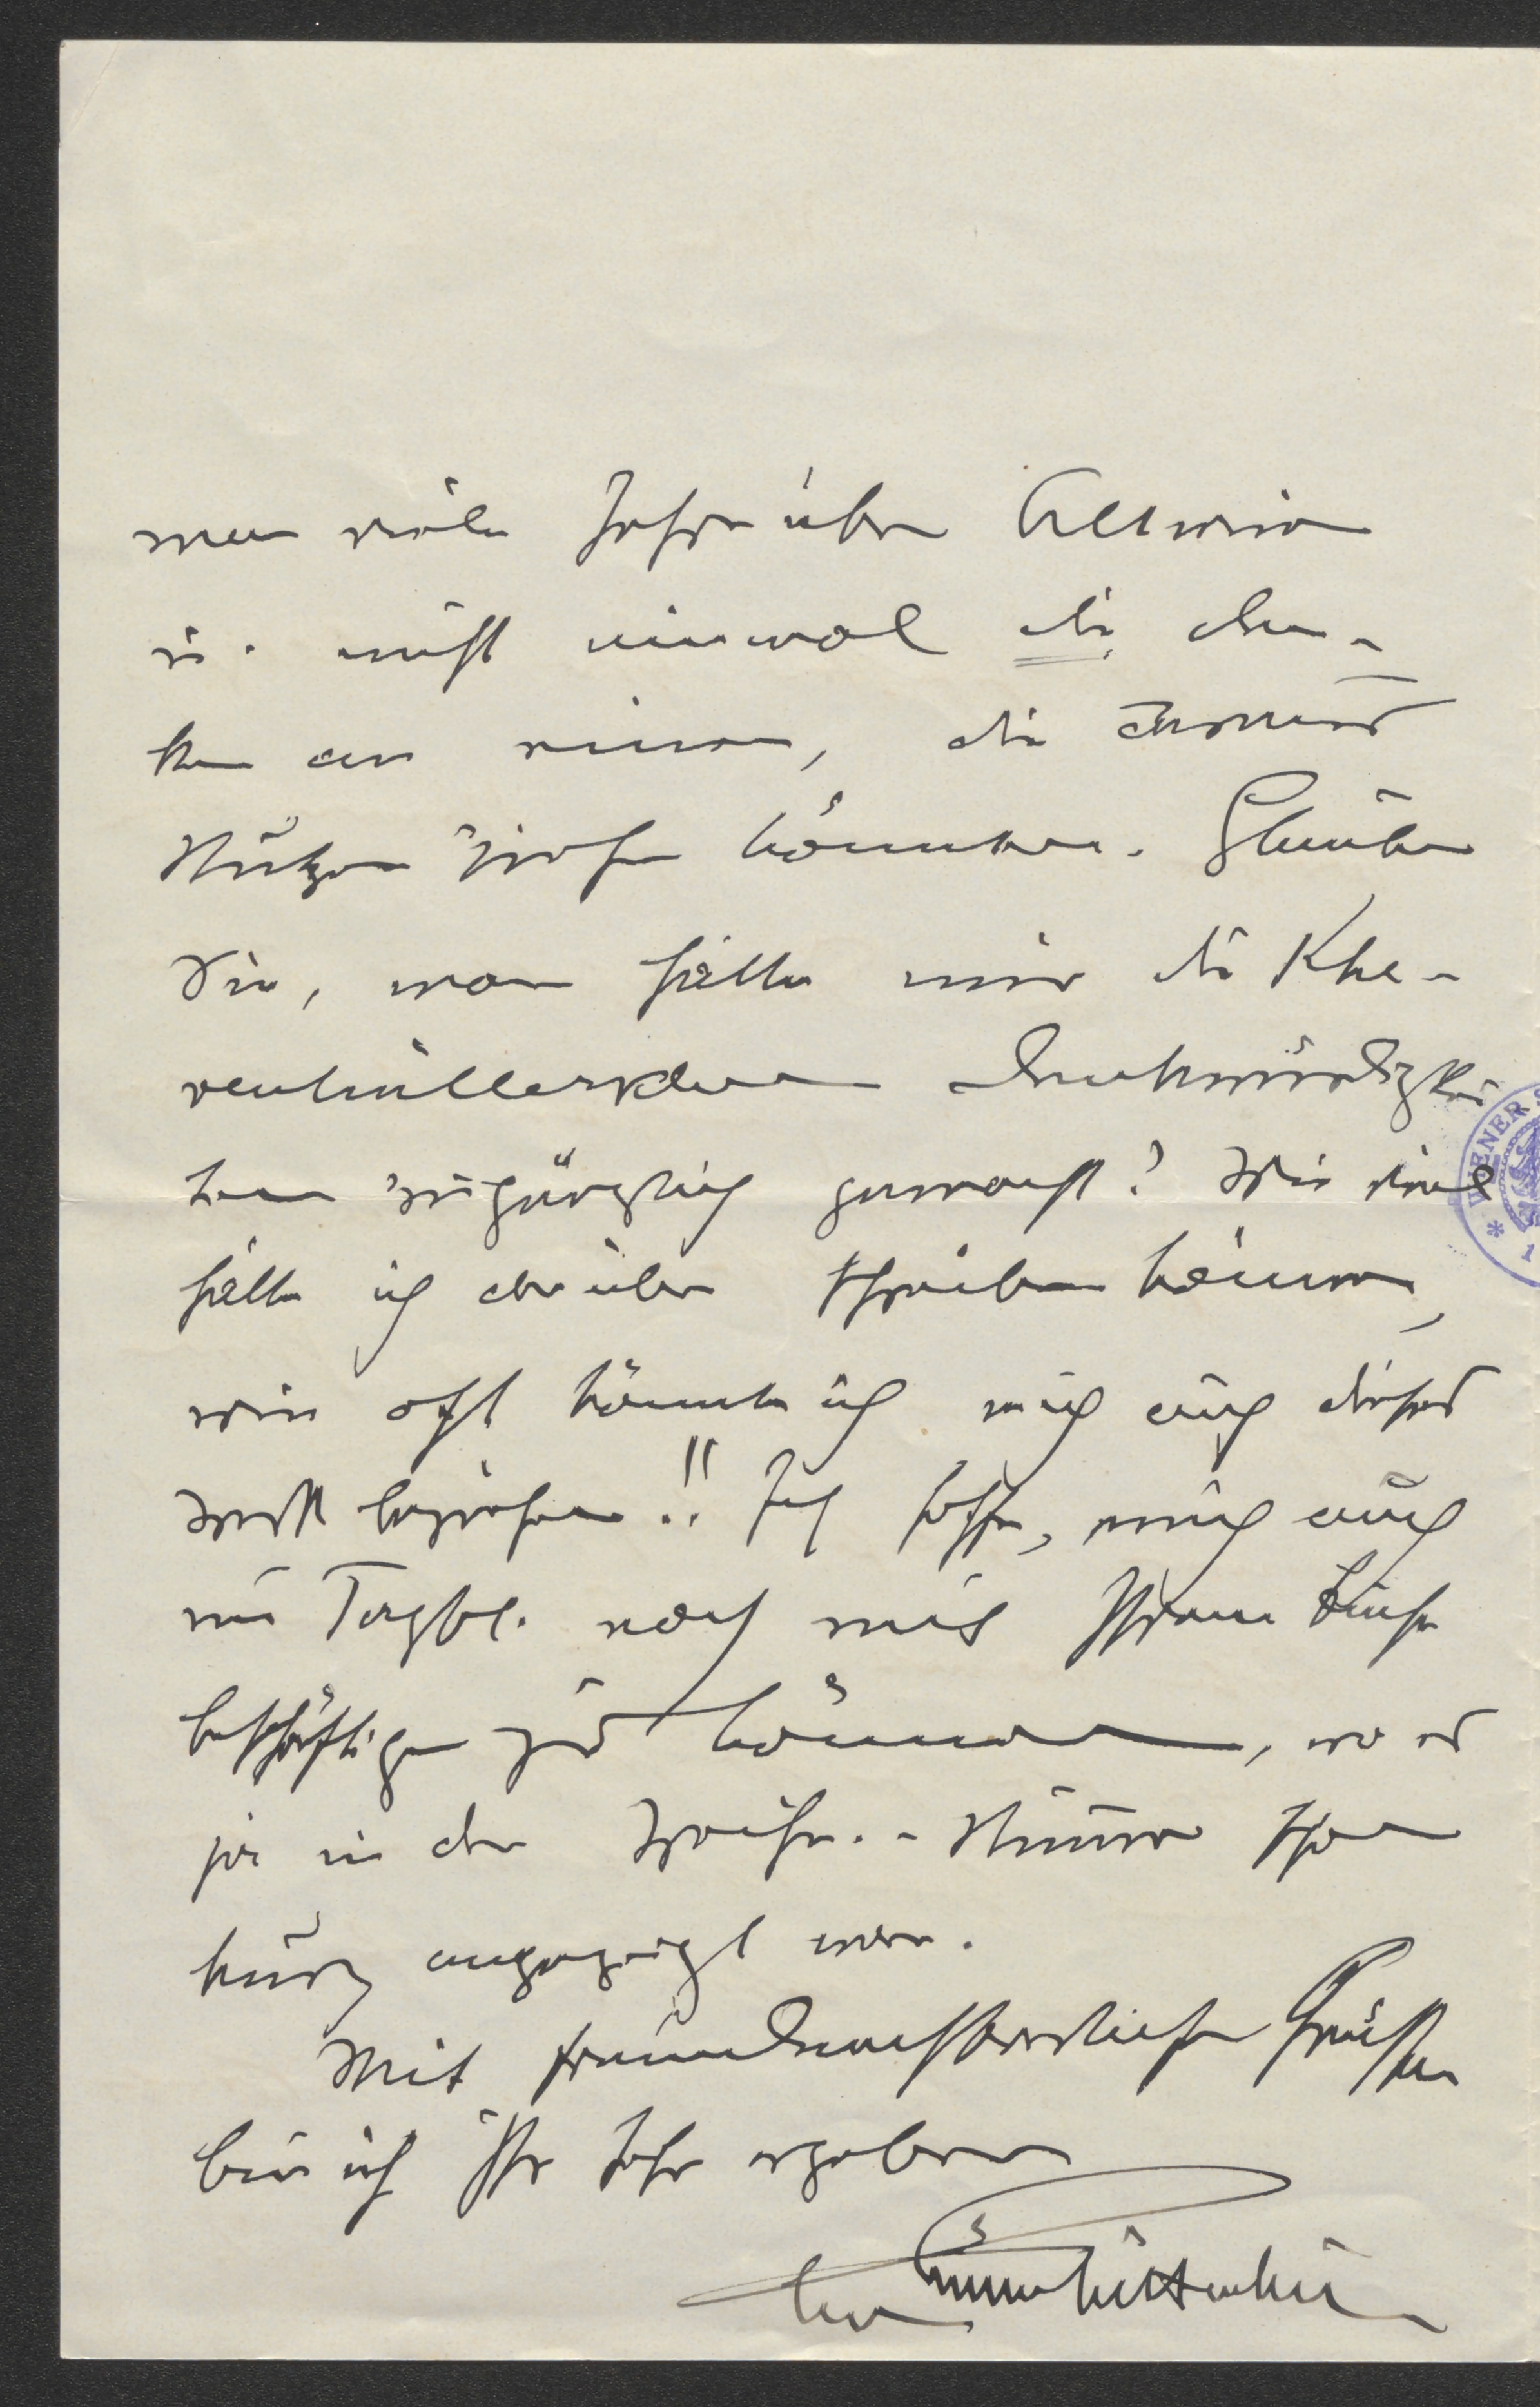 man viele Jahre über Altwien
u. nicht einmal die den-
ken an einen, die daraus
Nutzen ziehen könnten. Glauben
Sie, man hätte mir die Khe-
venhüllerschen Denkwürdigkei
ten zugänglich gemacht? Wie viel
hätte ich darüber schreiben können,
wie oft könnte ich mich auf dieses
Werk beziehen!! Ich hoffe, mich auch
im Tagbl. noch mit Ihrem Buche
beschäftigen zu können, wo es
ja in der Weihn.-Numer schon
kurz angezeigt war.
Mit freundnachbarlichen Grüßen
bin ich Ihr sehr ergebener
WIENER S